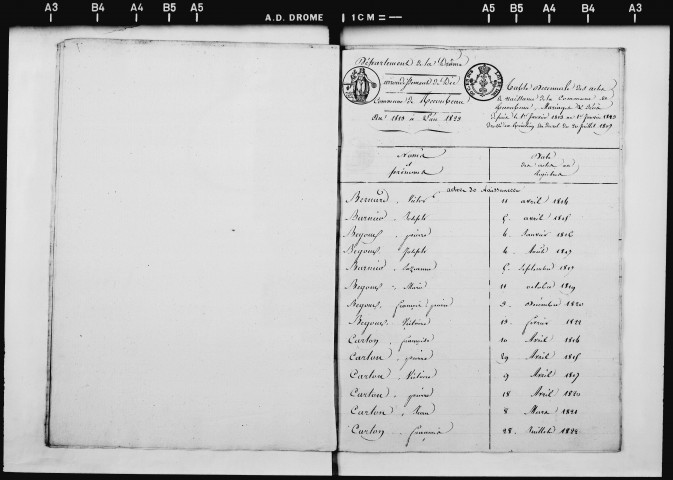 A3 B4 A4 B5 A5 A.D. DROME 1CM A5 B5 A4 B4 A3
Département de la Drôme
arrondissement de Die
Commune de
Du 1813 à l'an 1823
Table Décennale des actes
de naissance de la Commune de
Mariages & Décès
depuis le 1er Janvier 1813 au 1er Janvier 1823
du 20 Juillet 1807
Noms
et
prénoms
Date
des actes au
Registre
actes de Naissances
Bernard , Victor 11 avril 1816
Joseph 5 avril 1818
Begoux , pierre 6 Janvier 1816
Begoux Joseph 4 Août 1817
Suzanne 5 Septembre 1819
Begoux Marie 11 octobre 1819
Begoux François pierre 3 Décembre 1820
Begoux Victoire 13 février 1822
Carton , françoise 10 Avril 1816
Carton , pierre 29 Avril 1818
Carton , Victoire 9 Avril 1819
Carton , pierre 18 Avril 1820
Carton , Jean 8 Mars 1821
Carton , francois 28 Juillet 1822